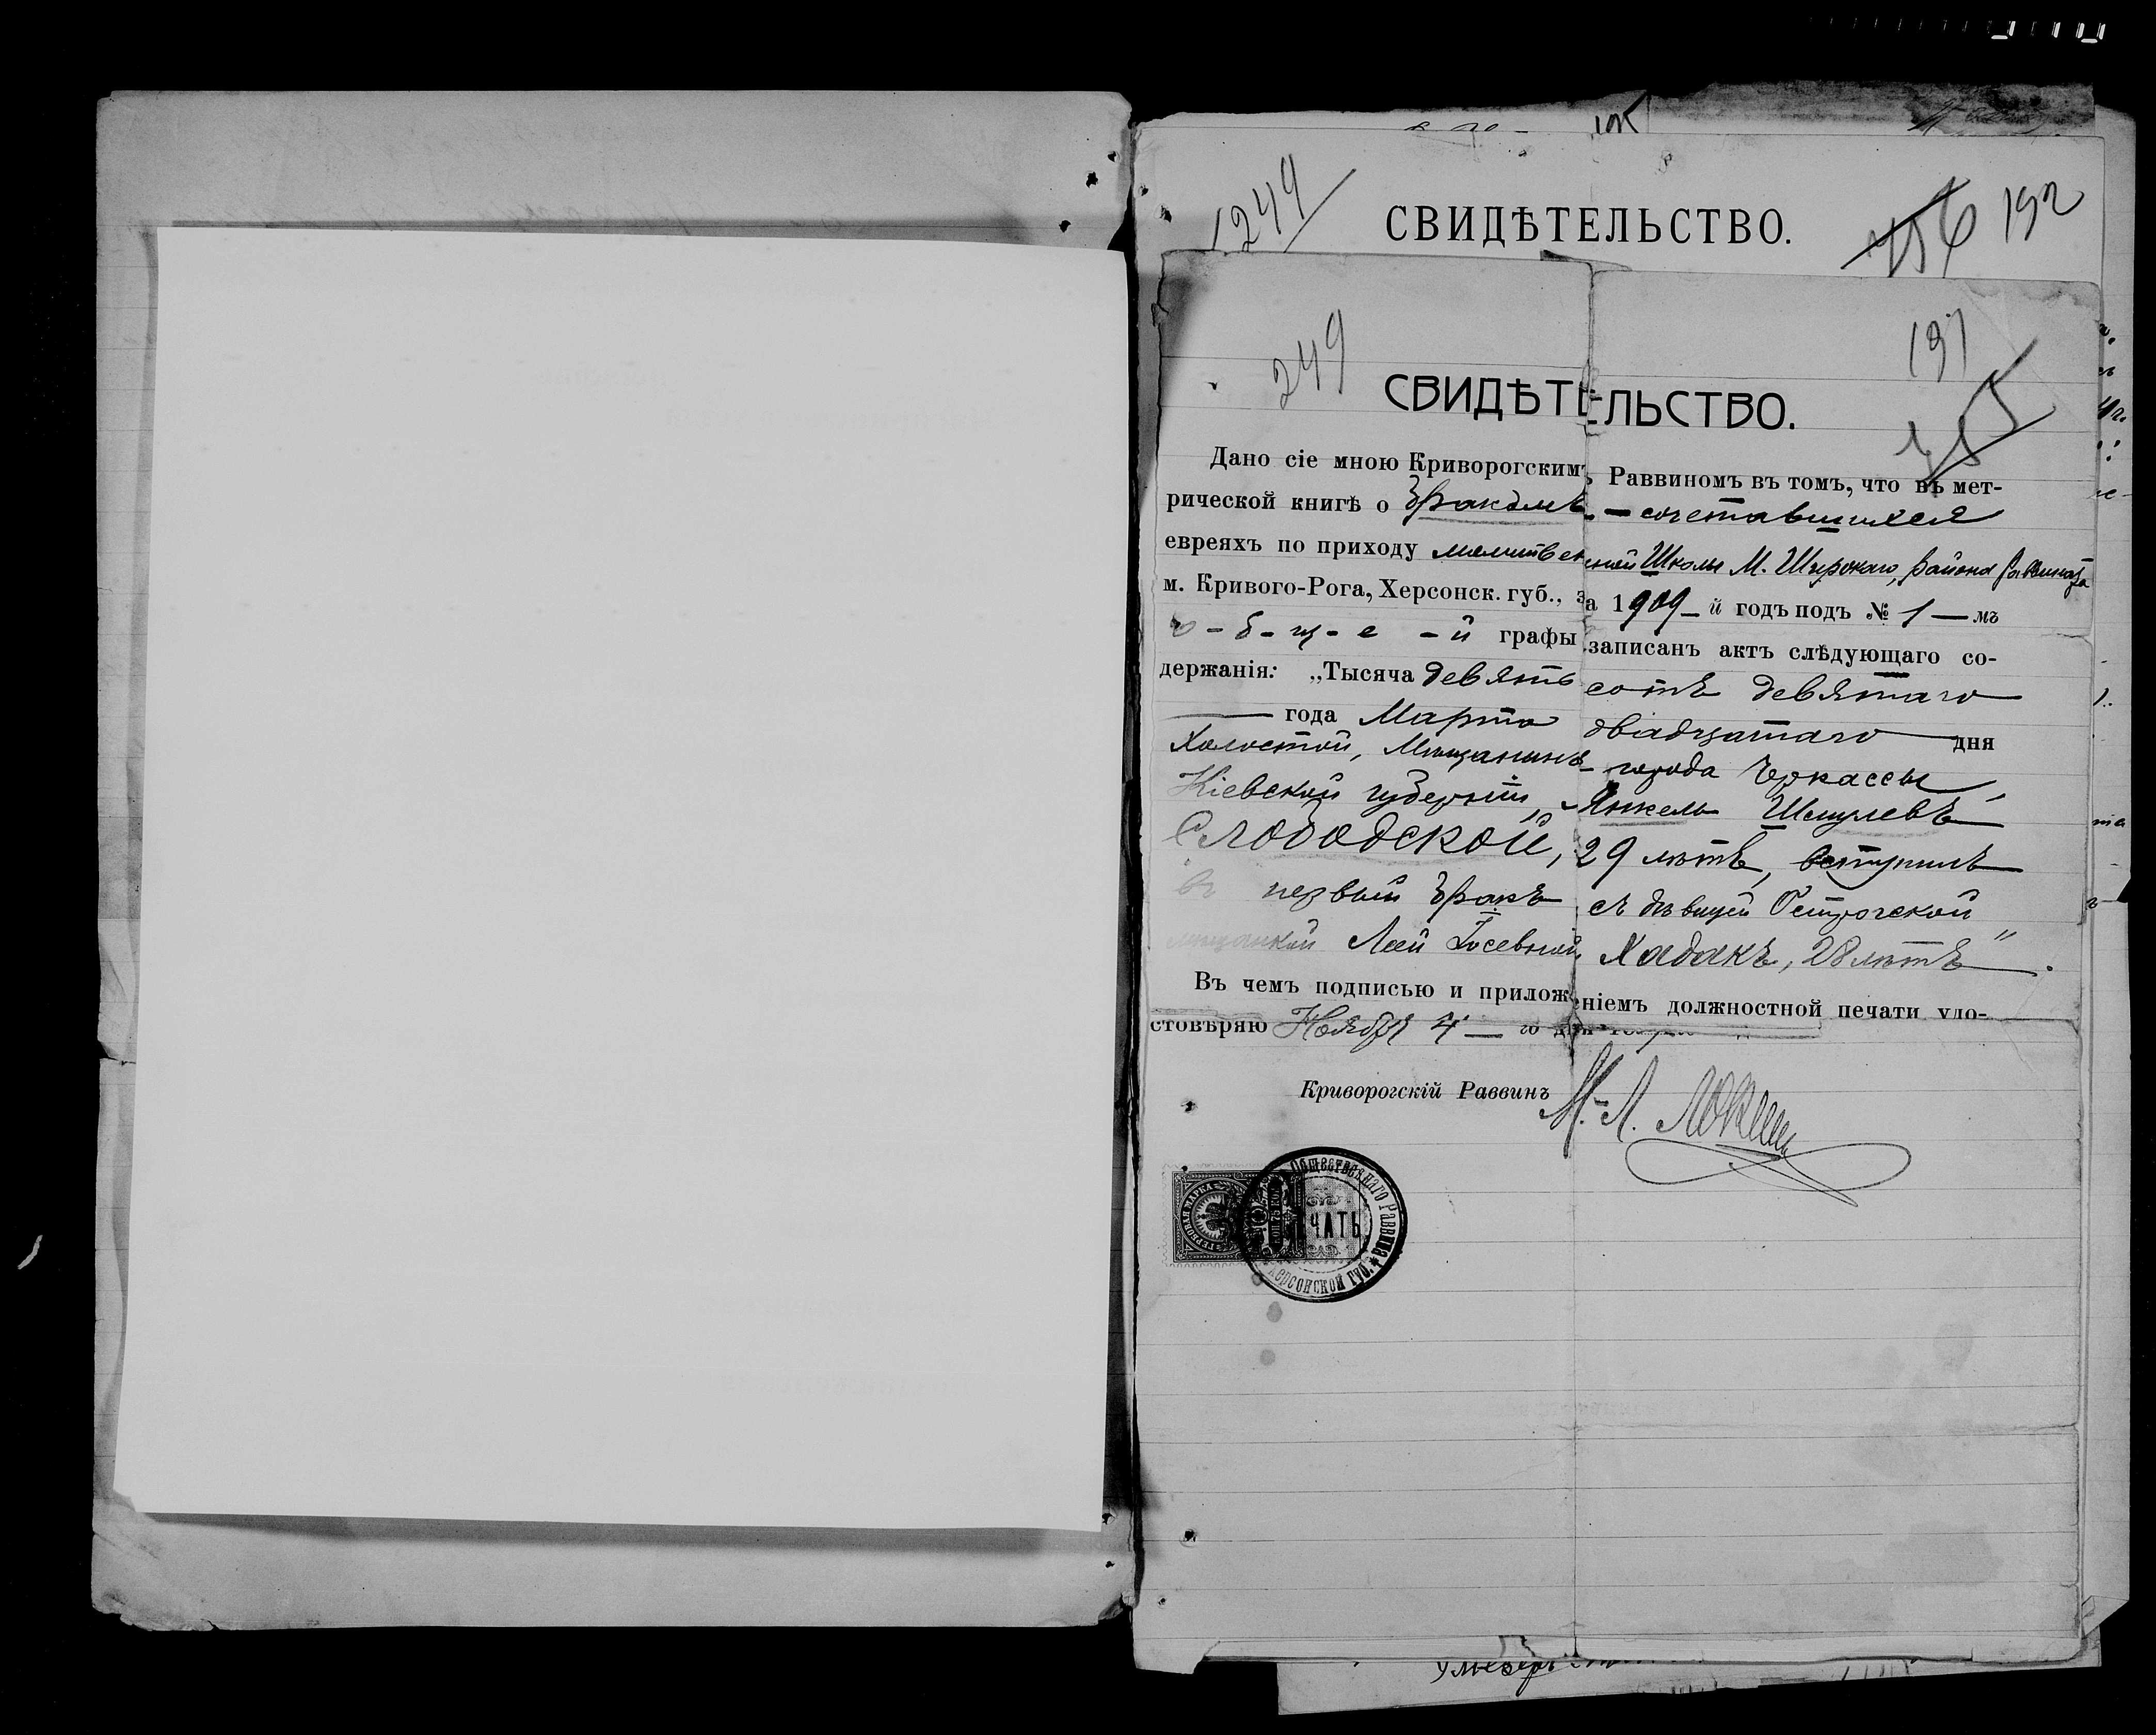 1249
СВИДѢТЕЛЬСТВО.
156 192
249
191
СВИДѢТЕЛЬСТВО.
155
Дано сіе мною Криворогскимъ Раввиномъ въ томъ, что въ мет-
рической книгѣ о бракомъ — сочетавшихся
евреяхъ по приходу молитвенной Школы М. Широкаго, района Раввината
м. Кривого-Рога, Херсонск. губ., за 1909-й годъ подъ № 1 — мъ
о-б-щ-е-й графы записанъ актъ слѣдующаго со-
держанія: „Тысяча девять сотъ девятаго
— года Марта двадцатаго дня
Холостой, Мѣщанинъ города Черкассы,
Кіевской губерніи, Янкель Шмулевъ
Слободской, 29 лѣтъ, вступилъ
въ первый бракъ съ дѣвицей Острогской
мѣщанкой Леей Іосевной Хадакъ, 28 лѣтъ".
Въ чемъ подписью и приложеніемъ должностной печати удо-
стовѣряю Ноября 4 — го дня
Криворогскій Раввинъ М. Л.
ГЕРБОВАЯ МАРКА
75 КОП.
Общественнаго Раввина
ЧАТЬ
Херсонской губ.